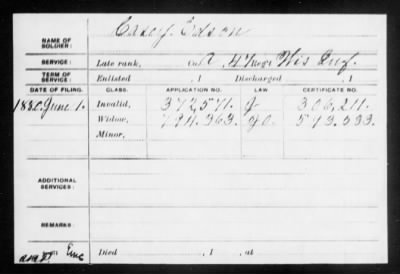 Casey, Edson
NAME OF SOLDIER:
SERVICE: Late rank, Co. A, 47 Reg't Wis Inf.
TERM OF SERVICE: Enlisted , 1 Discharged , 1
DATE OF FILING. CLASS. APPLICATION NO. LAW CERTIFICATE NO.
1880 June 1. Invalid, 372,571. 306,211.
Widow, 794.363. 593.533
Minor,
ADDITIONAL SERVICES:
REMARKS:
Died , 1 , at